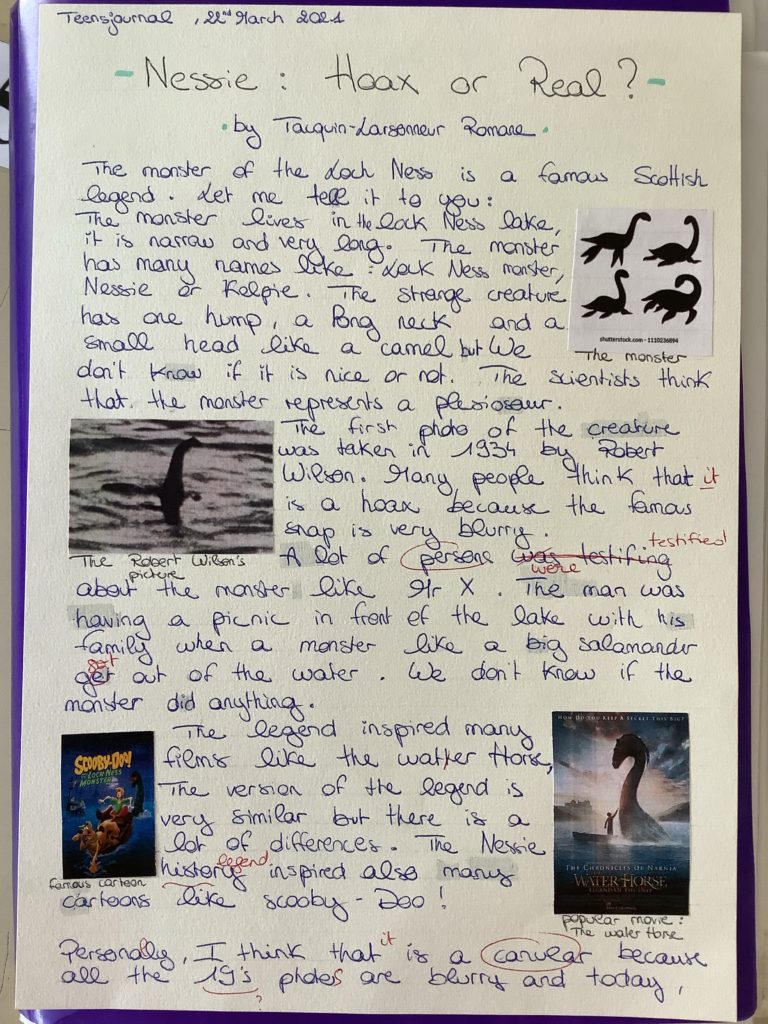 Teensjournal, 22nd March 2021
- Nessie : Hoax or Real ? -
• by Tacquin-Larsonneur Romane •
The monster of the Loch Ness is a famous Scottish
legend. Let me tell it to you :
The monster lives in the lock Ness lake,
it is narrow and very long. The monster
has many names like : Lock Ness monster,
Nessie or Kelpie. The strange creature
has one hump, a long neck and a
small head like a camel but We
don't know if it is nice or not. The scientists think
that the monster represents a plesiosaur.
shutterstock.com · 1110236894
The monster
The first photo of the creature
was taken in 1934 by Robert
Wilson. Many people think that it
is a hoax because the famous
snap is very blurry.
The Robert Wilson's
picture
A lot of persons was testifing testified
were
about the monster like Mr X. The man was
having a picnic in front of the lake with his
family when a monster like a big salamander
got
get out of the water. We don't know if the
monster did anything.
The legend inspired many
films like the watter Horse,
The version of the legend is
very similar but there is a
lot of differences. The Nessie
history legend inspired also many
cartoons like scooby-Doo !
SCOOBY-DOO!
LOCH NESS
MONSTER
famous cartoon
HOW DO YOU KEEP A SECRET THIS BIG?
THE CHRONICLES OF NARNIA
WATER HORSE
popular movie :
The water Horse
Personally, I think that it is a canular because
all the 19's photos are blurry and today,
?